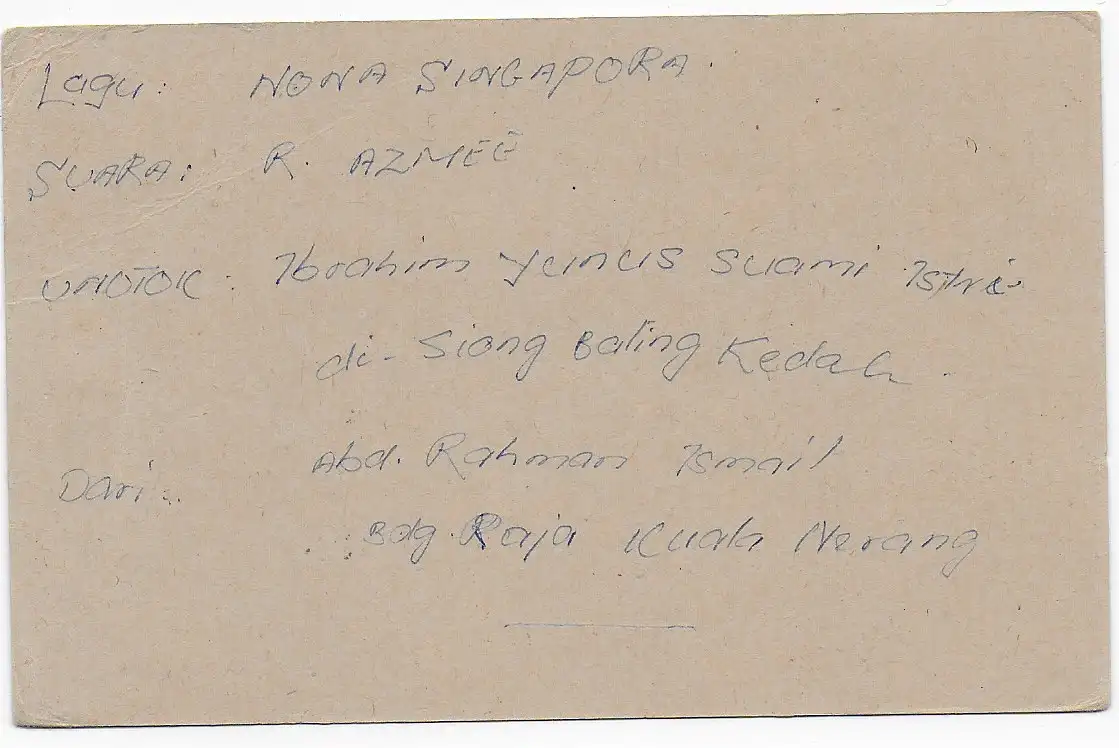 Lagu: NONA SINGAPORA.
SUARA: R. AZMEE
UNOTOK: Ibrahim Yunus Suami Istri
di-Siong Baling Kedah.
Dari: Abd. Rahman Ismail
Bdg. Raja Kuala Nerang